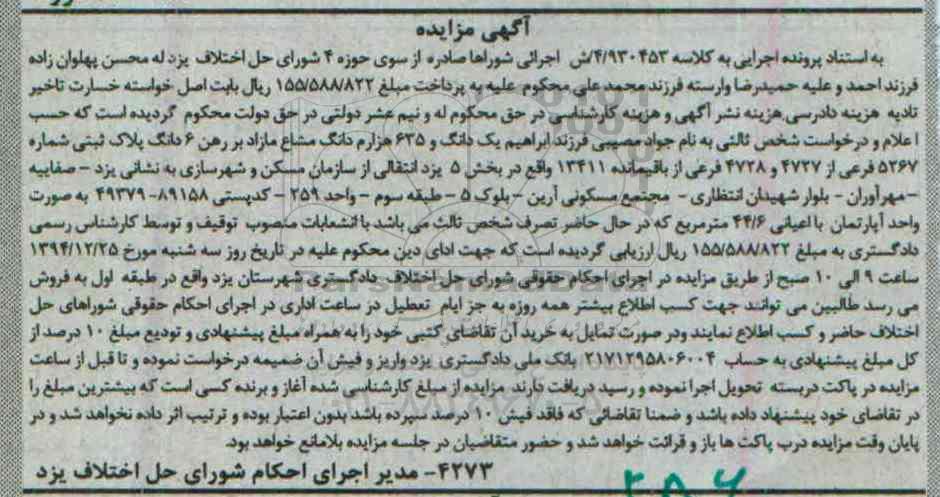 آگهی مزایده
به استناد پرونده اجرایی به کلاسه ۴/۹۳۰۴۵۳/ش اجرائی شوراها صادره از سوی حوزه ۴ شورای حل اختلاف یزد له محسن پهلوان زاده
فرزند احمد و علیه حمیدرضا وارسته فرزند محمد علی محکوم علیه به پرداخت مبلغ ۱۵۵/۵۸۸/۸۲۲ ریال بابت اصل خواسته خسارت تاخیر
تادیه هزینه دادرسی,هزینه نشر آگهی و هزینه کارشناسی در حق محکوم له و نیم عشر دولتی در حق دولت محکوم گردیده است که حسب
اعلام و درخواست شخص ثالثی به نام جواد مصیبی فرزند ابراهیم یک دانگ و ۶۳۵ هزارم دانگ مشاع مازاد بر رهن ۶ دانگ پلاک ثبتی شماره
۵۲۶۷ فرعی از ۴۷۲۷ و ۴۷۲۸ فرعی از باقیمانده ۱۳۴۱۱ واقع در بخش ۵ یزد انتقالی از سازمان مسکن و شهرسازی به نشانی یزد - صفاییه
-مهرآوران - بلوار شهیدان انتظاری - مجتمع مسکونی آرین - بلوک ۵ - طبقه سوم - واحد ۲۵۹ - کدپستی ۸۹۱۵۸-۴۹۳۷۹ به صورت
واحد آپارتمان با اعیانی ۴۴/۶ مترمربع که در حال حاضر تصرف شخص ثالث می باشد با انشعابات منصوب توقیف و توسط کارشناس رسمی
دادگستری به مبلغ ۱۵۵/۵۸۸/۸۲۲ ریال ارزیابی گردیده است که جهت ادای دین محکوم علیه در تاریخ روز سه شنبه مورخ ۱۳۹۴/۱۲/۲۵
ساعت ۹ الی ۱۰ صبح از طریق مزایده در اجرای احکام حقوقی شورای حل اختلاف دادگستری شهرستان یزد واقع در طبقه اول به فروش
می رسد طالبین می توانند جهت کسب اطلاع بیشتر همه روزه به جز ایام تعطیل در ساعت اداری در اجرای احکام حقوقی شوراهای حل
اختلاف حاضر و کسب اطلاع نمایند ودر صورت تمایل به خرید آن تقاضای کتبی خود را به همراه مبلغ پیشنهادی و تودیع مبلغ ۱۰ درصد از
کل مبلغ پیشنهادی به حساب ۲۱۷۱۲۹۵۸۰۶۰۰۴ بانک ملی دادگستری یزد واریز و فیش آن ضمیمه درخواست نموده و تا قبل از ساعت
مزایده در پاکت دربسته تحویل اجرا نموده و رسید دریافت دارند مزایده از مبلغ کارشناسی شده آغاز و برنده کسی است که بیشترین مبلغ را
در تقاضای خود پیشنهاد داده باشد و ضمنا تقاضائی که فاقد فیش ۱۰ درصد سپرده باشد بدون اعتبار بوده و ترتیب اثر داده نخواهد شد و در
پایان وقت مزایده درب پاکت ها باز و قرائت خواهد شد و حضور متقاضیان در جلسه مزایده بلامانع خواهد بود.
۴۲۷۳- مدیر اجرای احکام شورای حل اختلاف یزد